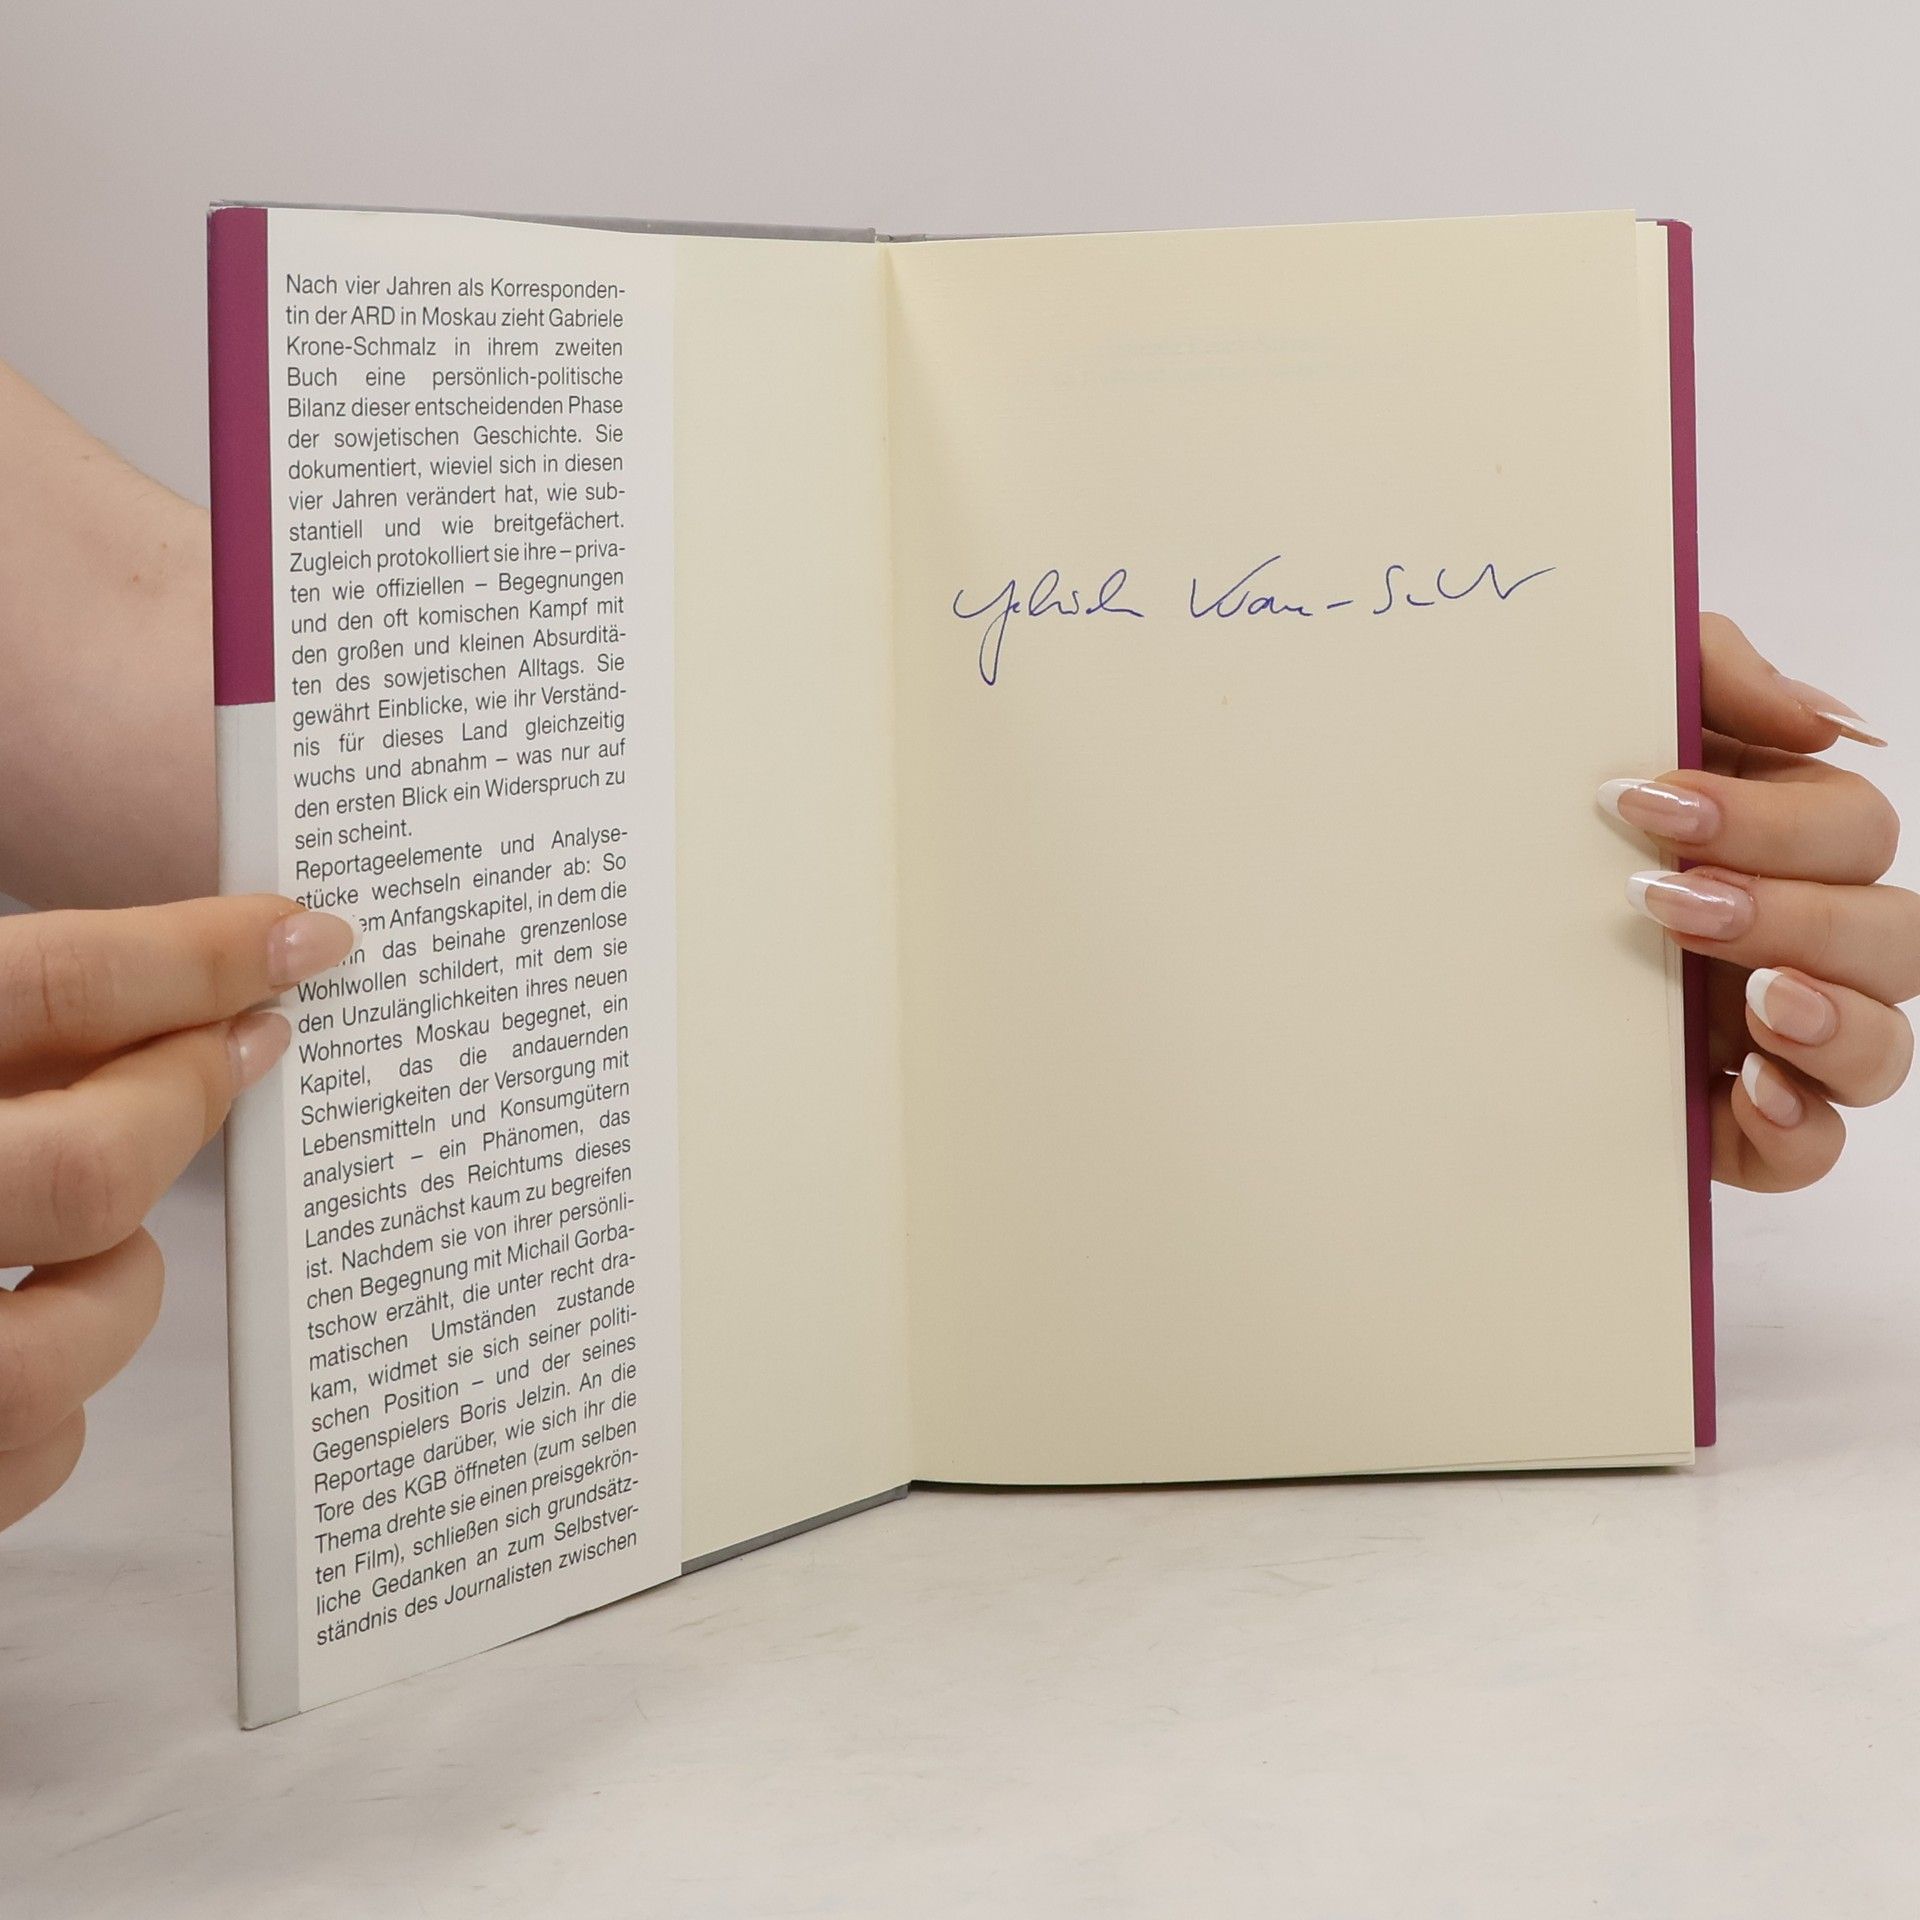 Nach vier Jahren als Korresponden-
tin der ARD in Moskau zieht Gabriele
Krone-Schmalz in ihrem zweiten
Buch eine persönlich-politische
Bilanz dieser entscheidenden Phase
der sowjetischen Geschichte. Sie
dokumentiert, wieviel sich in diesen
vier Jahren verändert hat, wie sub-
stantiell und wie breitgefächert.
Zugleich protokolliert sie ihre – priva-
ten wie offiziellen – Begegnungen
und den oft komischen Kampf mit
den großen und kleinen Absurditä-
ten des sowjetischen Alltags. Sie
gewährt Einblicke, wie ihr Verständ-
nis für dieses Land gleichzeitig
wuchs und abnahm – was nur auf
den ersten Blick ein Widerspruch zu
sein scheint.
Reportageelemente und Analyse-
stücke wechseln einander ab: So
Anfangskapitel, in dem die
das beinahe grenzenlose
Wohlwollen schildert, mit dem sie
den Unzulänglichkeiten ihres neuen
Wohnortes Moskau begegnet, ein
Kapitel, das die andauernden
Schwierigkeiten der Versorgung mit
Lebensmitteln und Konsumgütern
analysiert – ein Phänomen, das
angesichts des Reichtums dieses
Landes zunächst kaum zu begreifen
ist. Nachdem sie von ihrer persönli-
chen Begegnung mit Michail Gorba-
tschow erzählt, die unter recht dra-
matischen Umständen zustande
kam, widmet sie sich seiner politi-
schen Position – und der seines
Gegenspielers Boris Jelzin. An die
Reportage darüber, wie sich ihr die
Tore des KGB öffneten (zum selben
Thema drehte sie einen preisgekrön-
ten Film), schließen sich grundsätz-
liche Gedanken an zum Selbstver-
ständnis des Journalisten zwischen
Gabriele Krone-Schmalz